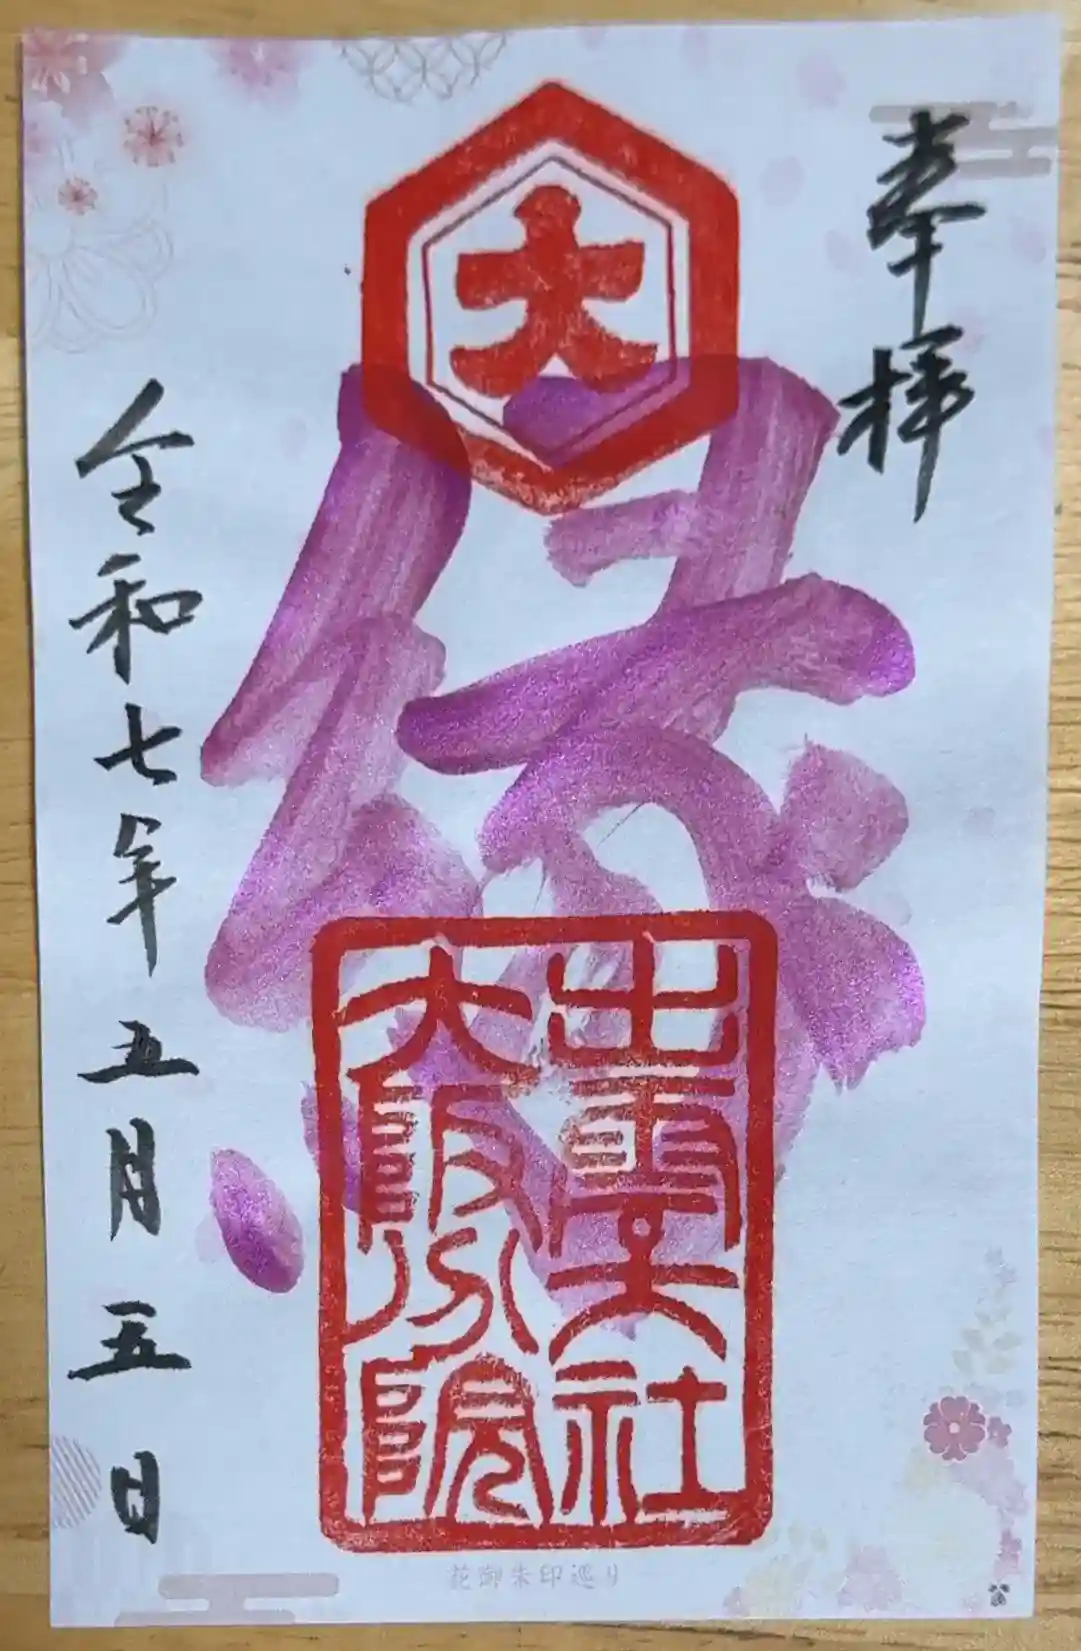 奉拝
大
縁
出雲大社
大阪分院
令和七年五月五日
花御朱印巡り